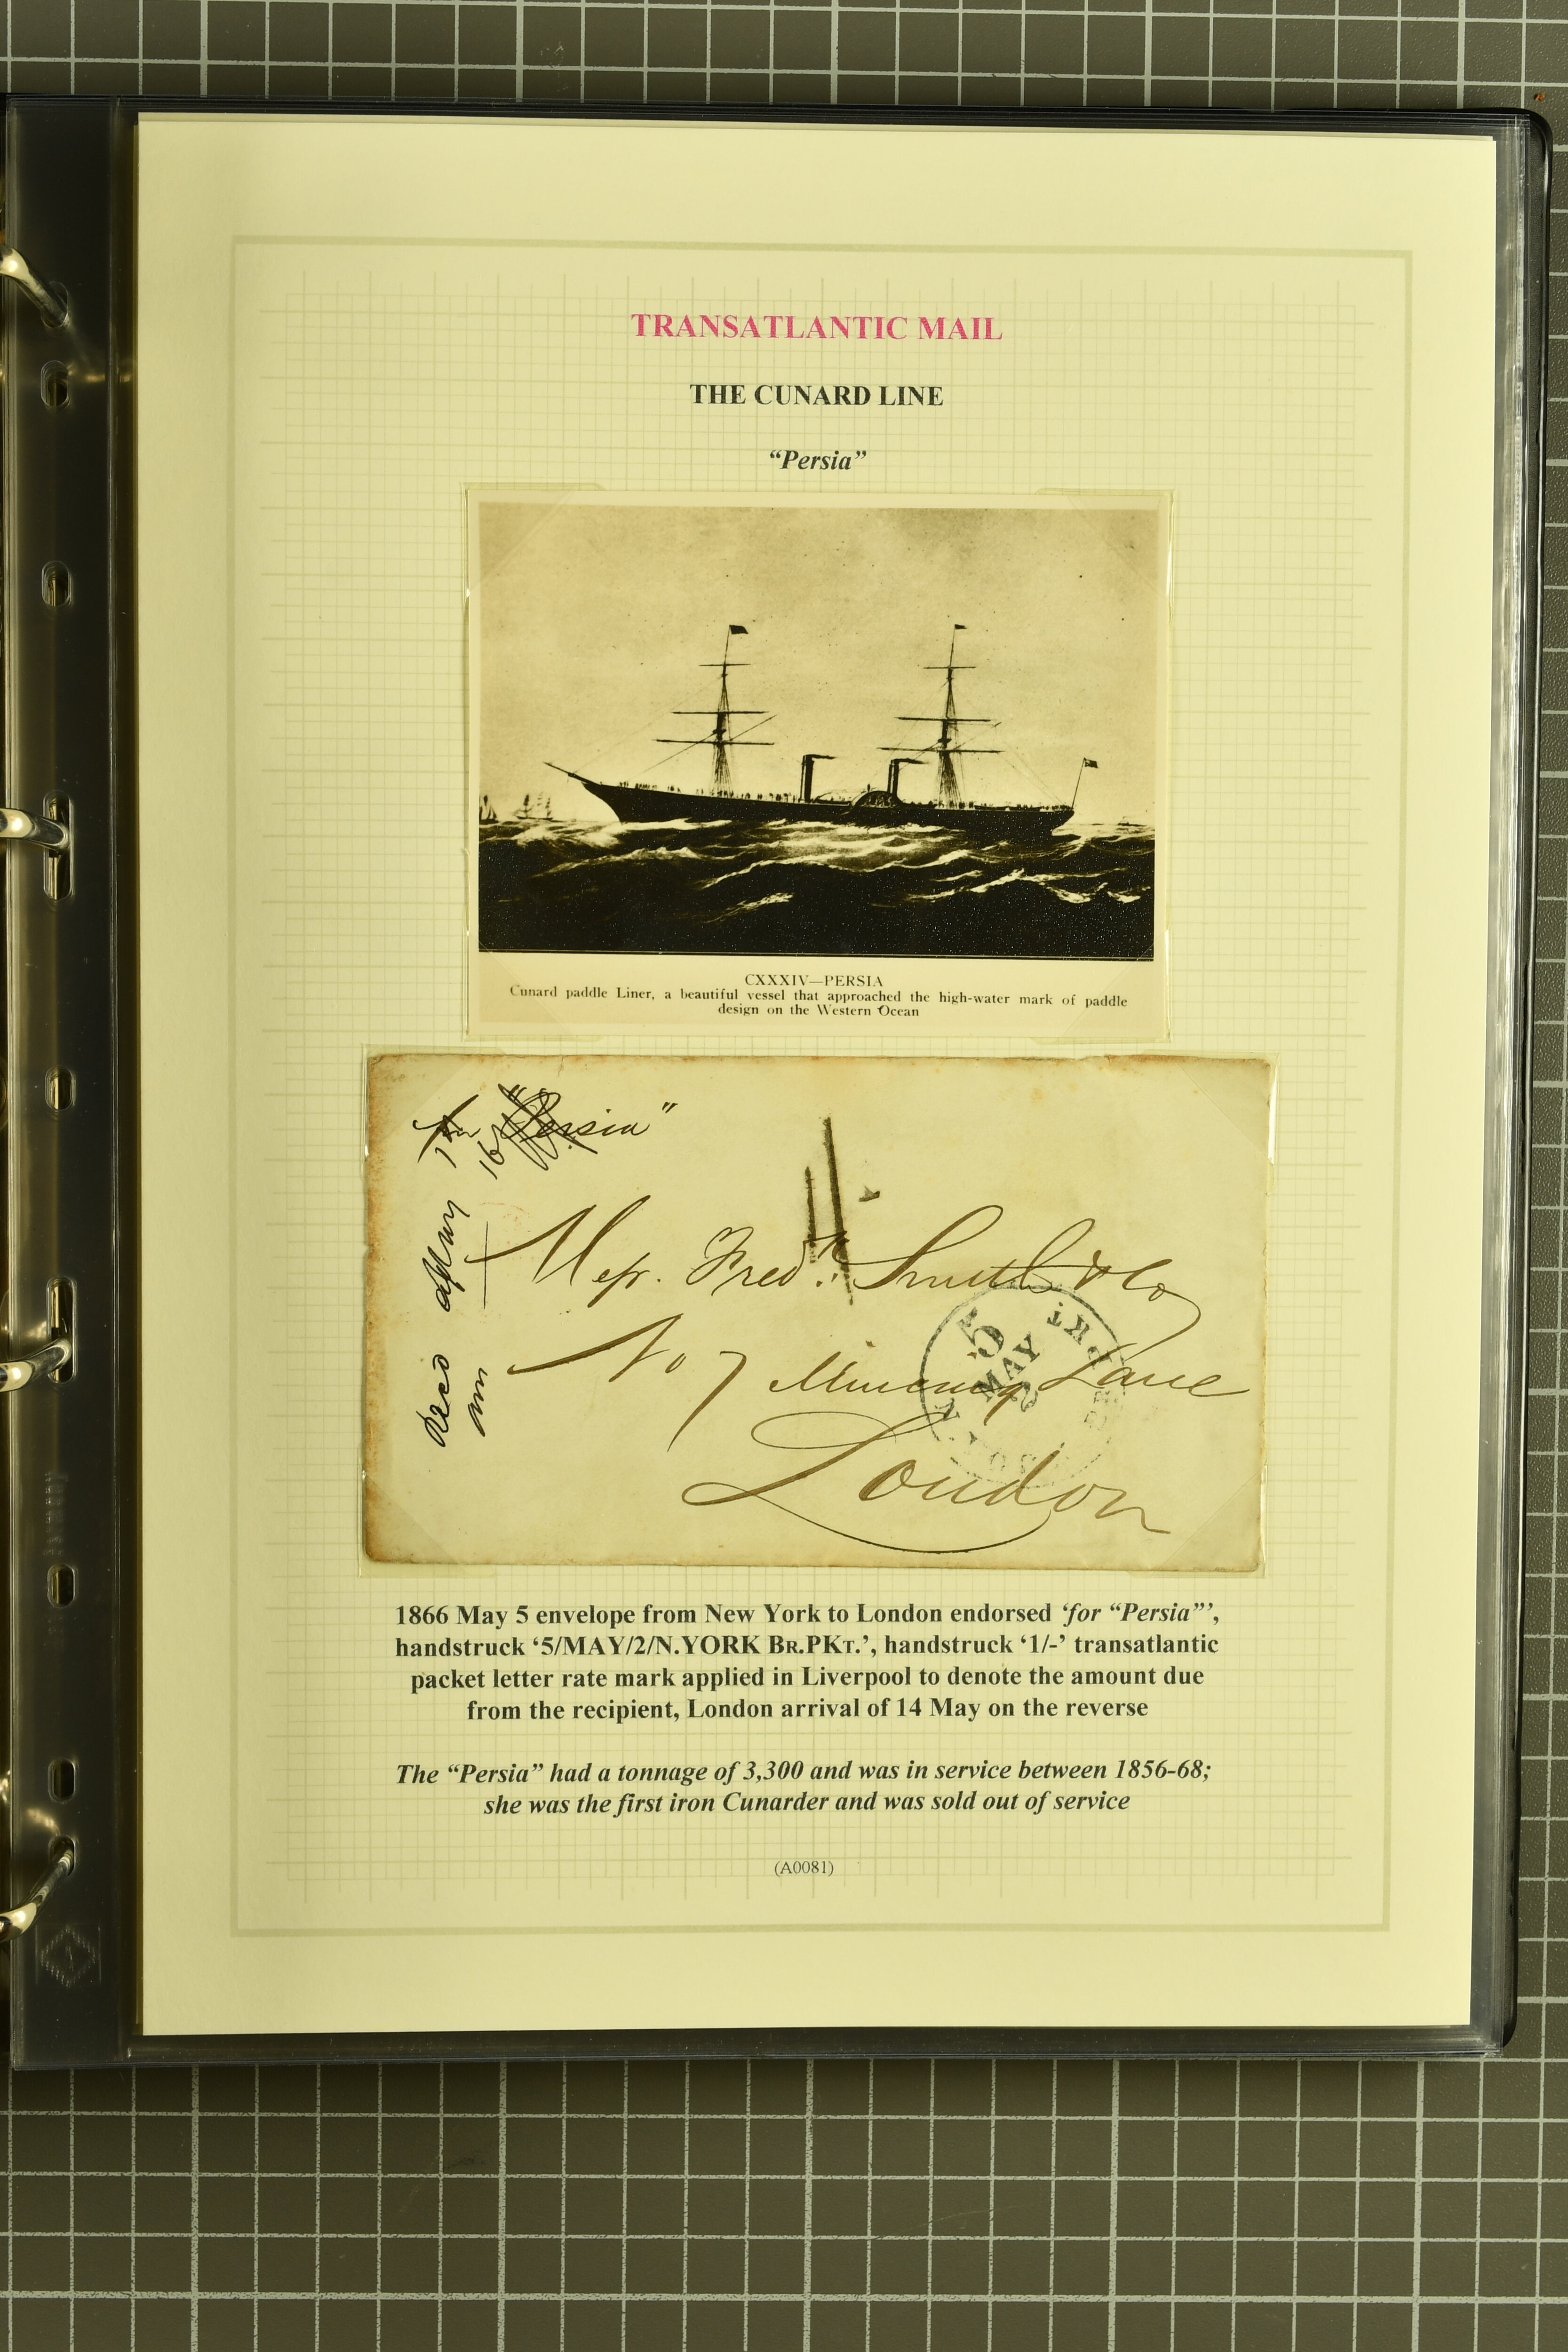 TRANSATLANTIC MAIL
THE CUNARD LINE
“Persia”
CXXXIV—PERSIA
Cunard paddle Liner, a beautiful vessel that approached the high-water mark of paddle
design on the Western Ocean
"Persia"
Mess. Fred. Smith & Co
No 7 Mincing Lane
London
5
MAY
2
1866 May 5 envelope from New York to London endorsed ‘for “Persia”’,
handstruck ‘5/MAY/2/N.YORK BR.PKT.’, handstruck ‘1/-’ transatlantic
packet letter rate mark applied in Liverpool to denote the amount due
from the recipient, London arrival of 14 May on the reverse
The “Persia” had a tonnage of 3,300 and was in service between 1856-68;
she was the first iron Cunarder and was sold out of service
(A0081)